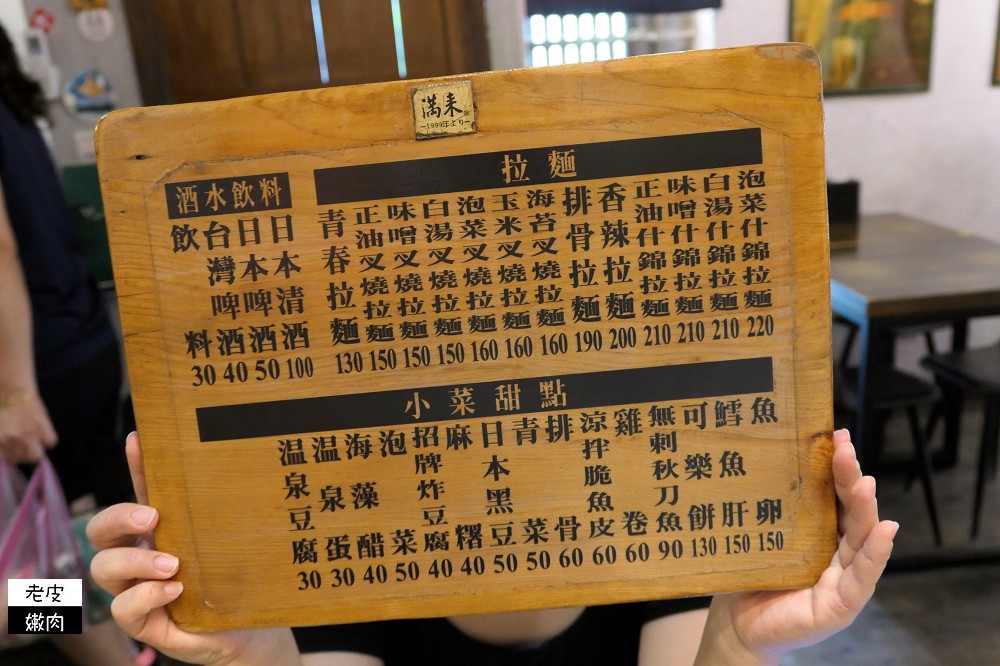 滿来
-1999年より-
酒水飲料
飲料 30
台灣啤酒 40
日本啤酒 50
日本清酒 100
拉麵
青春拉麵 130
正油叉燒拉麵 150
味噌叉燒拉麵 150
白湯叉燒拉麵 150
泡菜叉燒拉麵 160
玉米叉燒拉麵 160
海苔叉燒拉麵 160
排骨拉麵 190
香辣拉麵 200
正油什錦拉麵 210
味噌什錦拉麵 210
白湯什錦拉麵 210
泡菜什錦拉麵 220
小菜甜點
温泉豆腐 30
温泉蛋 30
海藻醋 40
泡菜 50
招牌炸豆腐 40
麻糬 40
日本黑豆 50
青菜 50
排骨 60
涼拌脆魚皮 60
雞卷 60
無刺秋刀魚 90
可樂餅 130
鱈魚肝 150
魚卵 150
老皮
嫩肉